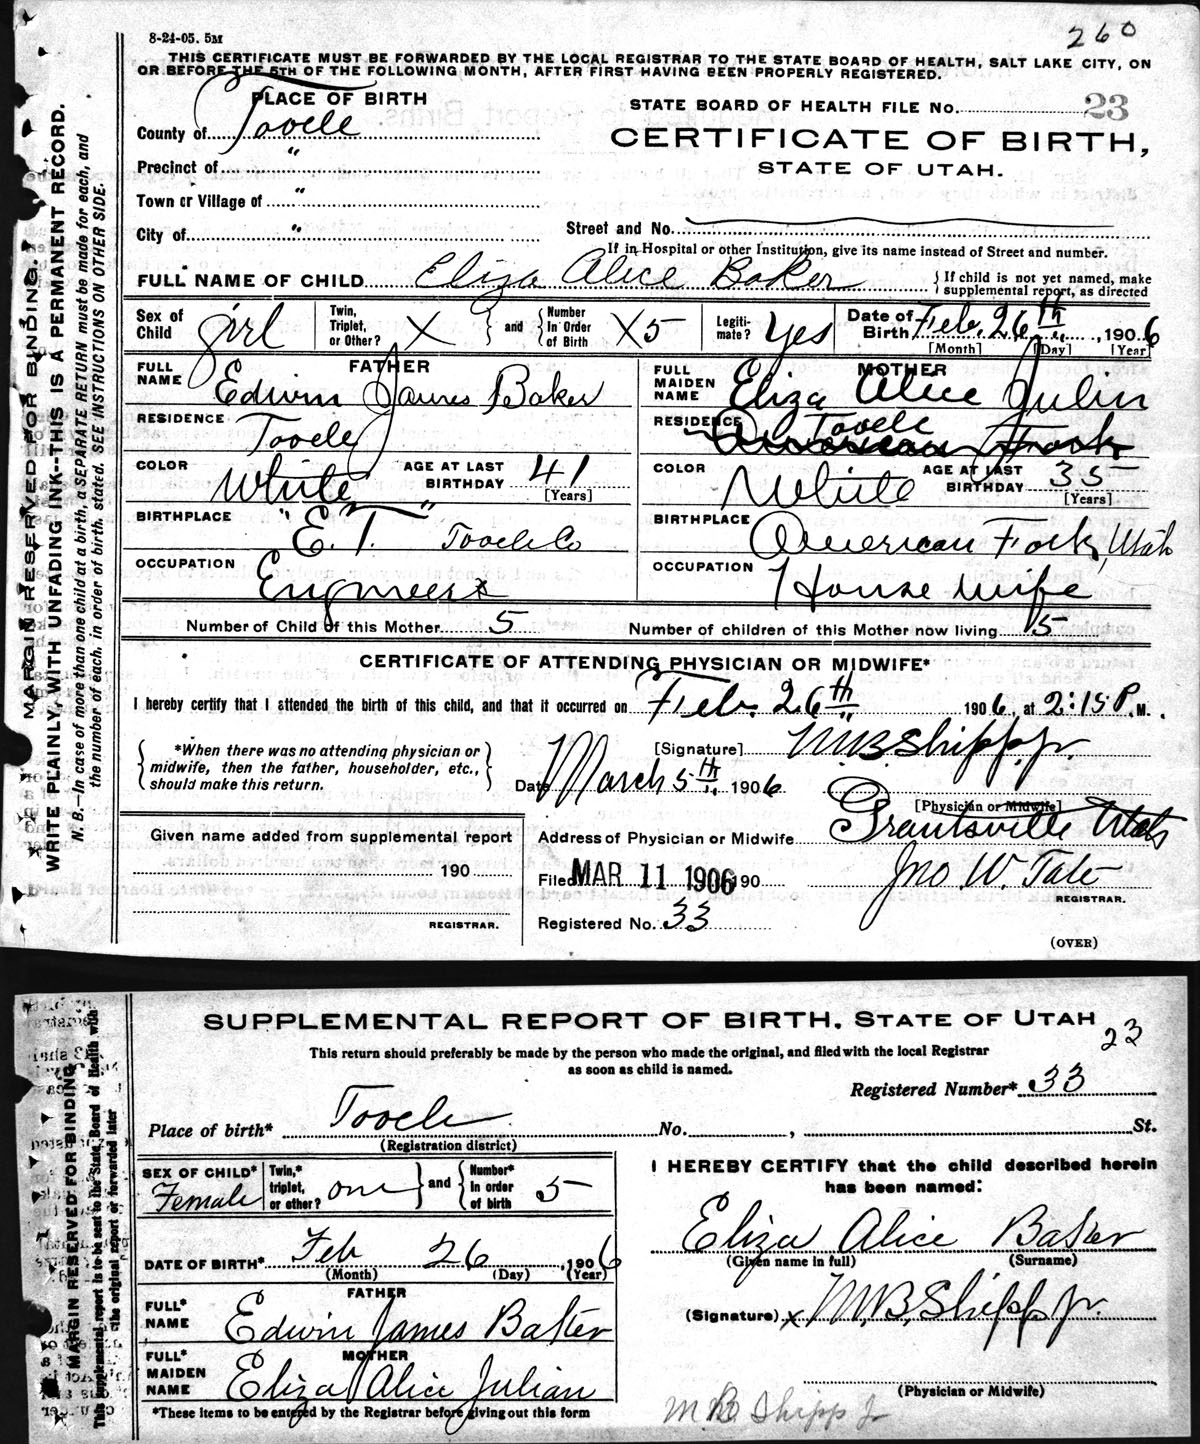 8-24-05. 5M
260
THIS CERTIFICATE MUST BE FORWARDED BY THE LOCAL REGISTRAR TO THE STATE BOARD OF HEALTH, SALT LAKE CITY, ON
OR BEFORE THE 5TH OF THE FOLLOWING MONTH, AFTER FIRST HAVING BEEN PROPERLY REGISTERED.
MARGIN RESERVED FOR BINDING.
WRITE PLAINLY, WITH UNFADING INK--THIS IS A PERMANENT RECORD.
N. B.—In case of more than one child at a birth, a SEPARATE RETURN must be made for each, and
the number of each, in order of birth, stated. SEE INSTRUCTIONS ON OTHER SIDE.
PLACE OF BIRTH
County of Tooele
Precinct of "
Town or Village of "
City of "
STATE BOARD OF HEALTH FILE No. 23
CERTIFICATE OF BIRTH,
STATE OF UTAH.
Street and No.
If in Hospital or other Institution, give its name instead of Street and number.
FULL NAME OF CHILD Eliza Alice Baker { If child is not yet named, make
supplemental report, as directed
Sex of Child girl Twin, Triplet, or Other? X } and { Number In Order of Birth X5 Legiti-mate? Yes Date of Birth Feb. 26th, 1906
[Month] [Day] [Year]
FATHER
FULL NAME Edwin James Baker
RESIDENCE Tooele
COLOR White AGE AT LAST BIRTHDAY 41 [Years]
BIRTHPLACE "E. T." Tooele Co
OCCUPATION Engineer
MOTHER
FULL MAIDEN NAME Eliza Alice Julin
RESIDENCE Tooele
American Fork
COLOR White AGE AT LAST BIRTHDAY 35 [Years]
BIRTHPLACE American Fork, Utah
OCCUPATION House wife
Number of Child of this Mother 5 Number of children of this Mother now living 5
CERTIFICATE OF ATTENDING PHYSICIAN OR MIDWIFE*
I hereby certify that I attended the birth of this child, and that it occurred on Feb. 26th 1906, at 2:15 P. M.
{ *When there was no attending physician or
midwife, then the father, householder, etc.,
should make this return. }
[Signature] M.B. Shipp Jr.
Date March 5th 1906
[Physician or Midwife]
Given name added from supplemental report
190
REGISTRAR.
Address of Physician or Midwife Grantsville Utah
Filed MAR 11 1906 190 Jno W. Tate
REGISTRAR.
Registered No. 33
(OVER)
SUPPLEMENTAL REPORT OF BIRTH, STATE OF UTAH
23
This return should preferably be made by the person who made the original, and filed with the local Registrar
as soon as child is named.
Registered Number* 33
MARGIN RESERVED FOR BINDING
This supplemental report is to be sent to the State Board of Health with
the original report or forwarded later
Place of birth* Tooele No. , St.
(Registration district)
SEX OF CHILD* Female Twin,* triplet, or other? one } and { Number* In order of birth 5
DATE OF BIRTH* Feb 26, 1906
(Month) (Day) (Year)
FATHER
FULL* NAME Edwin James Baker
MOTHER
FULL* MAIDEN NAME Eliza Alice Julian
*These items to be entered by the Registrar before giving out this form
I HEREBY CERTIFY that the child described herein
has been named:
Eliza Alice Baker
(Given name in full) (Surname)
(Signature) x M.B. Shipp Jr.
(Physician or Midwife)
M B Shipp Jr